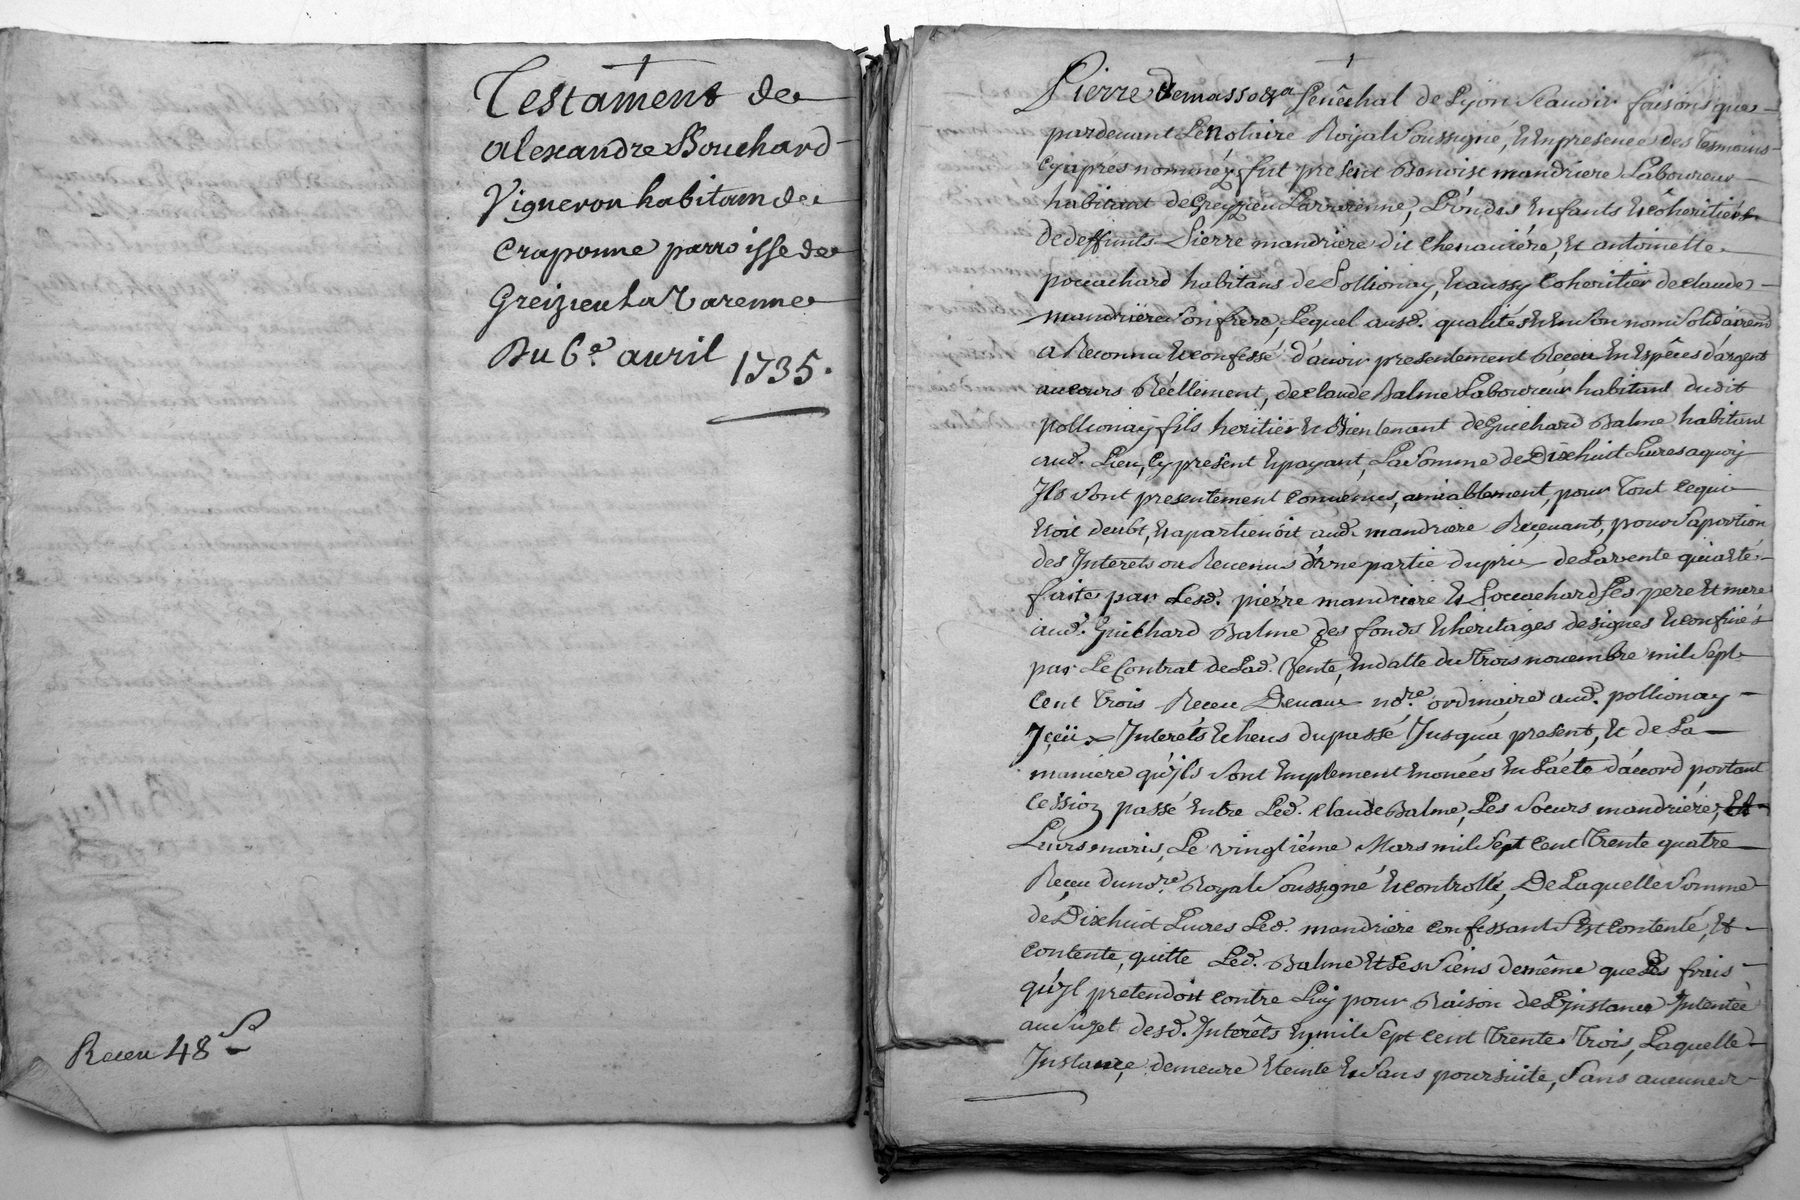 Testament de
alexandre Bouchard
Vigneron habitant de
Craponne parroisse de
Greizieu La Varenne
Du 6e avril 1735.
Receu 48 s
Pierre Demasso &a senêchal de Lyon Scauoir faisons que
pardeuant Le notaire Royal Soussigné, Et En presence des Tesmoins
cyapres nomméz, fut present Benoist mandriere Laboureur
habitant de Greyzieu Lavarenne, L'un des Enfants Et cohéritiérs
de deffunts Pierre mandriere dit chenauiére, Et antoinette
poccachard habitans de Pollionay, Et aussy Coheritier de claude
mandriere Son frere, Lequel ausd. qualités Et En Son nom Solidairemt
a Reconnu Et confessé d'auoir presentement Receu En Espêces d'argent
au cours Réellement, de claude Balme Laboureur habitant dudit
pollionay fils heritier Et Bientenant de Guichard Balme habitant
aud. Lieu, Cy present Et payant, La Somme de Dixhuit Liures a quoy
Ils Sont presentement conuenus, amiablement, pour Tout ce qui
Etoit deubt, Et apartienoit aud. mandriere Receuant, pour Sa portion
des Interets ou Reuenus d'une partie du prix de La vente qui a été
faite par Lesd. piérre mandriere Et Poccachard Ses pere Et mere
aud. Guichard Balme des fonds Et heritages designes Et confinés
par Le Contrat de Lad. Vente, En datte du Trois nouembre mil Sept
cent Trois Receu Deuaux nore. ordinaire aud. pollionay
Iceux Interéts Echeus du passé Jusqu'a present, Et de La
maniere qu'ils Sont Emplement Enoncés En L'acte d'accord portant
cession passé Entre Led. claude Balme, Les Soeurs mandriére, Et
Leurs maris, Le vingtiéme Mars mil Sept cent Trente quatre
Reçeu du nore. Royal Soussigné Et controllé, De Laquelle Somme
de Dixhuit Liures Led. mandriere confessant S'est contenté, Et
contente, quitte Led. Balme Et Les Siens de même que Les frais
qu'Il pretendoit contre Luy pour Raison de L'Instance Intentée
au Sujet desd. Interêts En mil Sept cent Trente Trois, Laquelle
Instançe demeure Eteinte Et Sans poursuite, Sans aucune